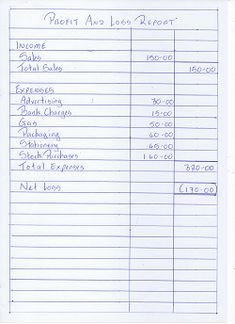 PROFIT AND LOSS REPORT
INCOME
Sales 150-00
Total Sales 150-00
EXPENSES
Advertising 30-00
Bank Charges 15-00
Gas 50-00
Packaging 60-00
Stationery
Stock Purchases
Total Expenses 320-00
Net Loss (170-00)